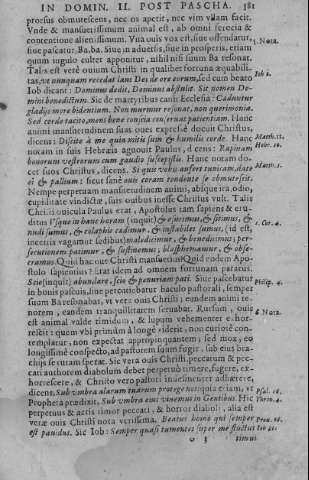 IN DOMIN. II. POST PASCHA. 381
prorsus obmutescens, nec os apetit, nec vim vllam facit.
Vnde & mansuetissimum animal est, ab omni ferocia &
contentione alienissimum. Vna ouis vox est, siue offendatur,
3. Nota.
siue pascatur. Ba. ba. Siue in aduersis, siue in prosperis, etiam
quum iugulo culter apponitur, nihil nisi suum Ba resonat.
Talis est verè ouium Christi in qualibet fortuna æquabilitas,
Iob 1.
vt nunquam recedat laus Dei de ore eorum, sed cum beato
Iob dicant: Dominus dedit, Dominus abstulit. Sit nomen Domini
benedictum. Sic de martyribus canit Ecclesia: Caduntur
gladijs more bidentium. Non murmur resonat, non querimonia.
Sed corde tacito, mens bene conscia conseruat patientiam. Hanc
animi mansuetudinem suas oues expresse docuit Christus,
dicens: Discite à me quia mitis sum & humilis corde. Hanc
Matth. 11.
notam in suis Hebræis agnouit Paulus, dicens: Rapinam
Hebr. 10.
bonorum vestrorum cum gaudio suscepistis. Hanc notam docet
suos Christus, dicens. Si quis vult auferre tunicam, date
ei & pallium: sicut sanè ouis coram tondente se obmutescit.
Nempe perpetuam mansuetudinem animi, absque ira, odio,
cupiditate vindictæ, suis ouibus inesse Christus vult. Talis
Christi ouicula Paulus erat, Apostolus iam sapiens &
Vsque in hanc horam (inquit) & esurimus, & sitimus, &
nudi sumus, & colaphis cædimur, & instabiles sumus, (id est,
1. Cor. 4.
incertis vagamur sedibus) maledicimur, & benedicimus; persecutionem
patimur, & sustinemus; blasphemamur, & obsecramus.
Quid hac oue Christi mansuetius? Quid eodem Apostolo
sapientius? Erat idem ad omnem fortunam paratus.
Scio (inquit) abundare, scio & penuriam pati. Siue pascebatur
Philip. 4.
in bonis pascuis, siue percutiebatur baculo pastorali, semper
suum Ba resonabat, vt vera ouis Christi; eundem animi tenorem,
eandem tranquillitatem seruabat. Rursum, ouis
4. Nota.
est animal valde timidum, & lupum vehementer exhorrescit:
quem vbi primùm à longè viderit, non curiosè contemplatur,
non expectat appropinquantem; sed mox, eo
longissimè conspecto, ad pastorem suum fugit, sub eius brachijs
se tutam sperat. Sic vera ouis Christi, peccatum & peccati
authorem diabolum debet perpetuò timere, fugere, exhorrescere,
& Christo vero pastori indesinenter adhærere,
dicens, Sub vmbra alarum tuarum protege nos; quia etiam, vt
Psal. 16.
Propheta prædixit, Sub vmbra eius viuemus in Gentibus. Hic
Thren. 4.
perpetuus & actis timor peccati, & horror diaboli, alia est
veræ ouis Christi nota verissima. Beatus homo qui semper
Prou. 28.
est pauidus. Sic Iob: Semper quasi tumentes super me fluctus
Iob 31.
timui